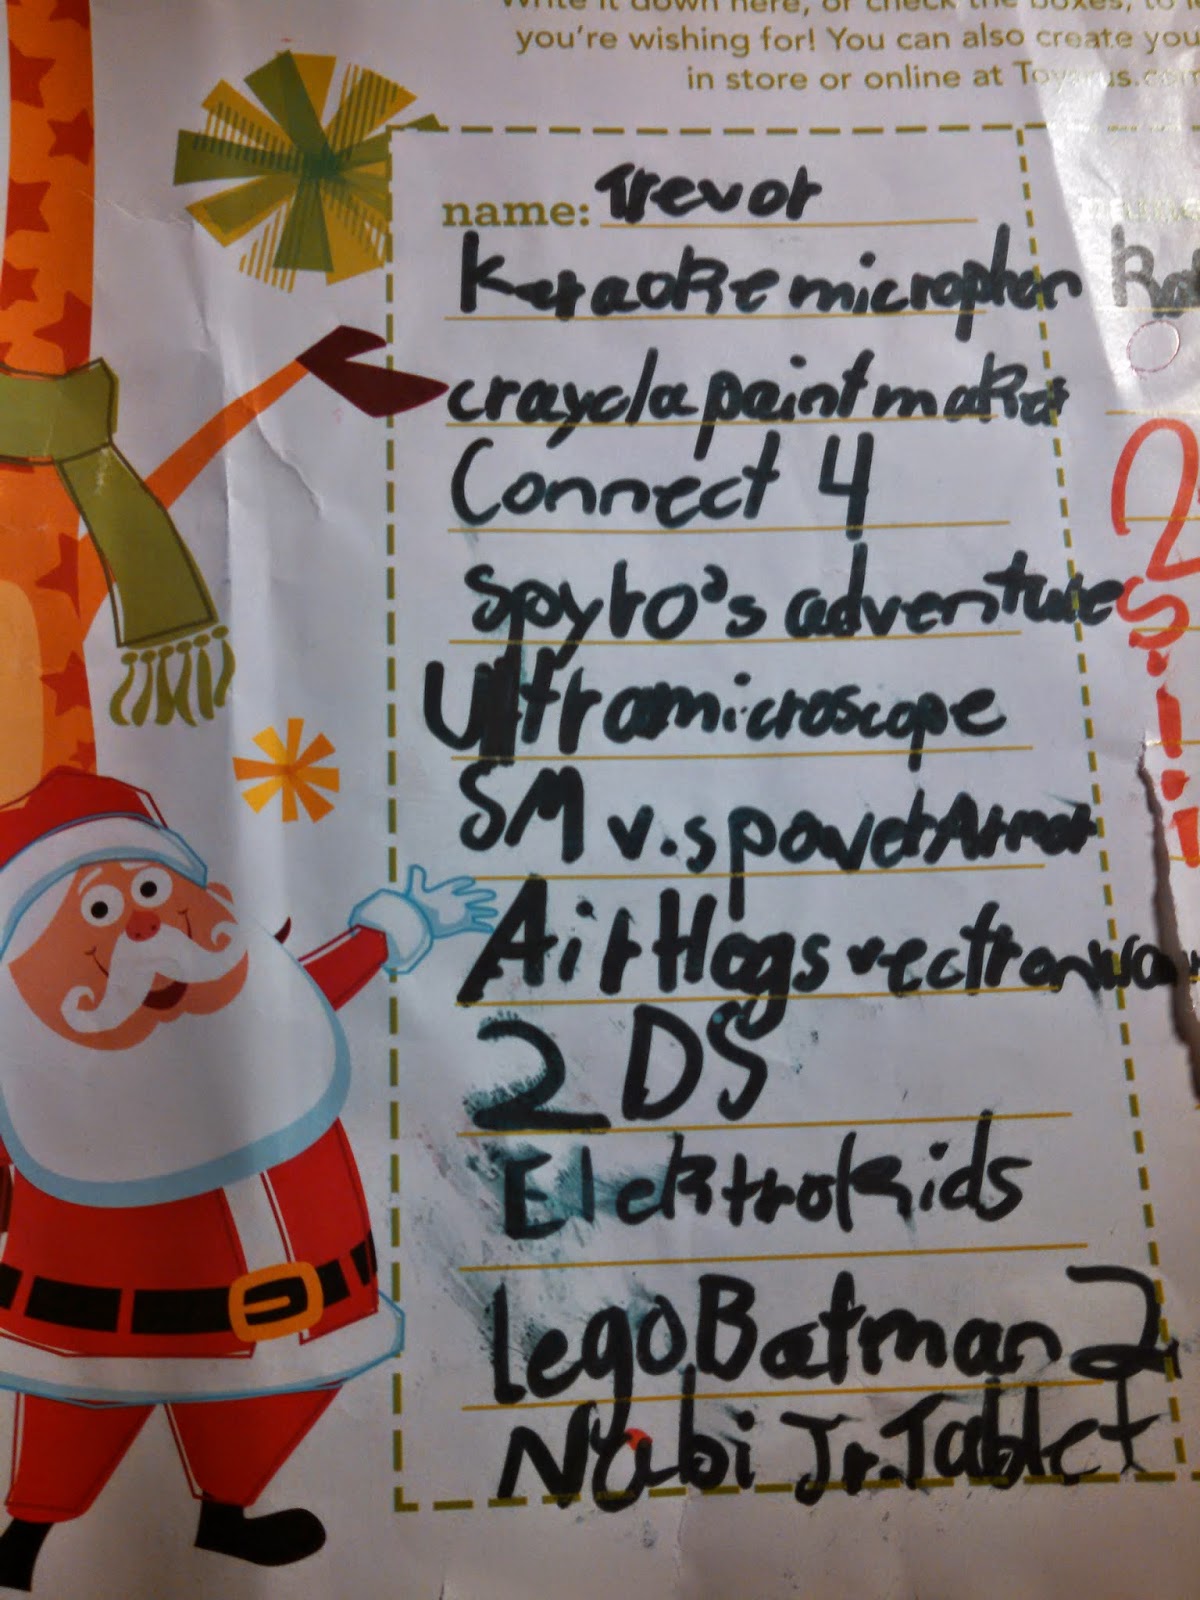 Write it down here, or check the boxes, to
you're wishing for! You can also create you
in store or online at Toysrus.com
name: Trevor
Karaoke microphon
crayola paint maker
Connect 4
Spyro's adventure
Ultra microscope
SM v.s power Armor
Air Hogs vectron wa
2DS
Elektrokids
Lego Batman 2
Nabi Jr. Tablet